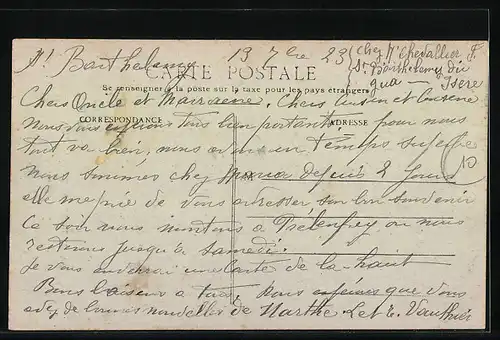 St Barthelemy 13 7bre 23 Chez Mr Chevallier F.
CARTE POSTALE St Barthelemy du
Se renseigner à la poste sur la taxe pour les pays étrangers gua — Isere
Chers Oncle et Marraine. Chers cousin et cousine
CORRESPONDANCE ADRESSE
Nous vous espérons tous bien portants pour nous
tout va bien, nous avons un temps superbe
nous sommes chez Maria depuis 2 jours
elle me prie de vous adresser son bon souvenir
ce soir nous montons a Prélenfrey ou nous
resterons jusqu'à samedi.
Je vous enverrai une carte de la-haut
Bons baisers a tous. Nous espérons que vous
avez de bonnes nouvelles de Marthe. L et E. Vauthier